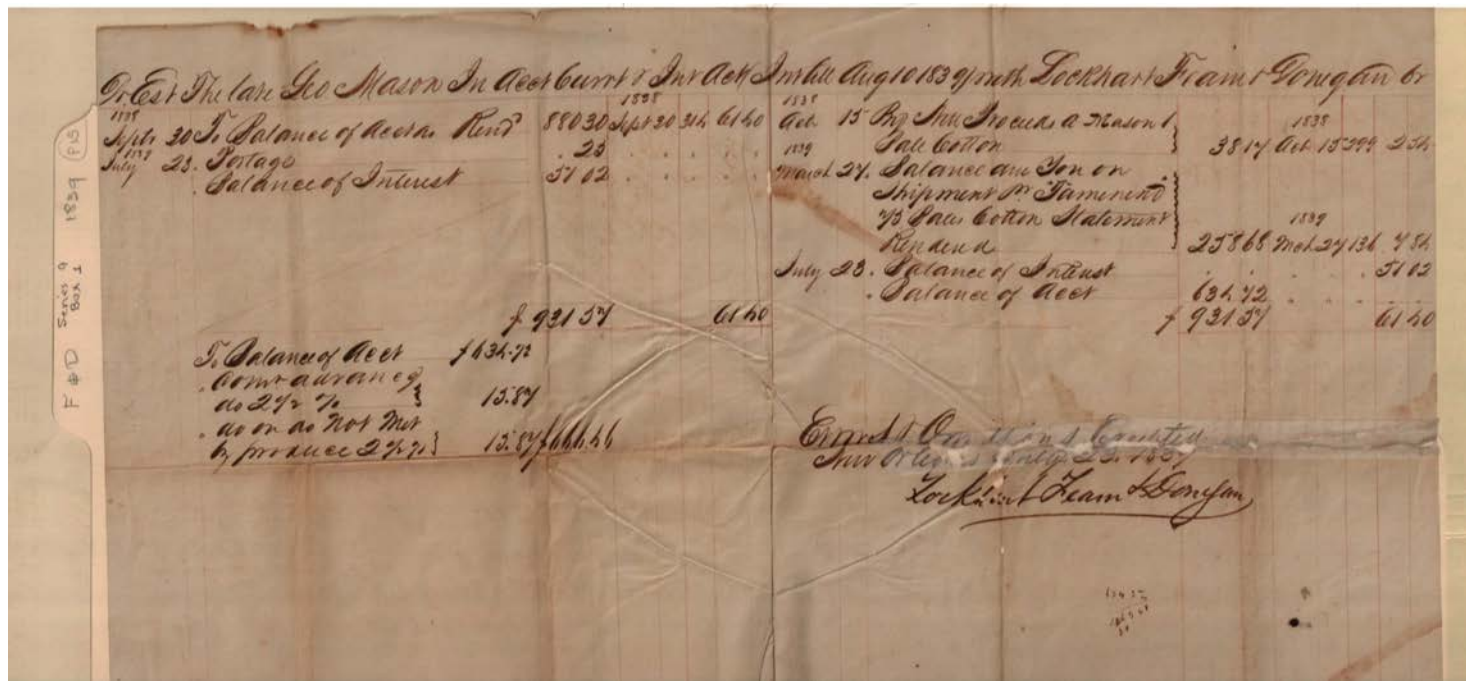 Dr Est The late Geo Mason In Acct Currt & Int Acct Int till Aug 10 1839 with Lockhart Fearn & Donegan Cr
1838 1838
Septr 30 To Balance of Acct as Rend 880 30 Sept 30 314 61 40
1839
July 23. Postage . 25
. Balance of Interest 51 02
$ 931 57 61 40
To Balance of Acct $634.72
. Comn advancg
do 2½ % } 15.87
. do on do Not Met
by produce 2½ % } 15.87 $666.46
1838 1838
Oct 15 By Nett Proceeds a Mason 1
Bale Cotton 38 17 Oct 15 299 2 54
1839
March 27. Balance due You on
Shipment pr Tamenend
Bales Cotton Statement
1839
Rendered 258 68 Mch 27 136 7 84
July 23. Balance of Interest 51 02
. Balance of Acct 634 72
$ 931 57 61 40
Errors & Omissions Excepted
New Orleans July 23. 1839
Lockhart Fearn & Donegan
F & D Series 9 Box 1 1839 F15